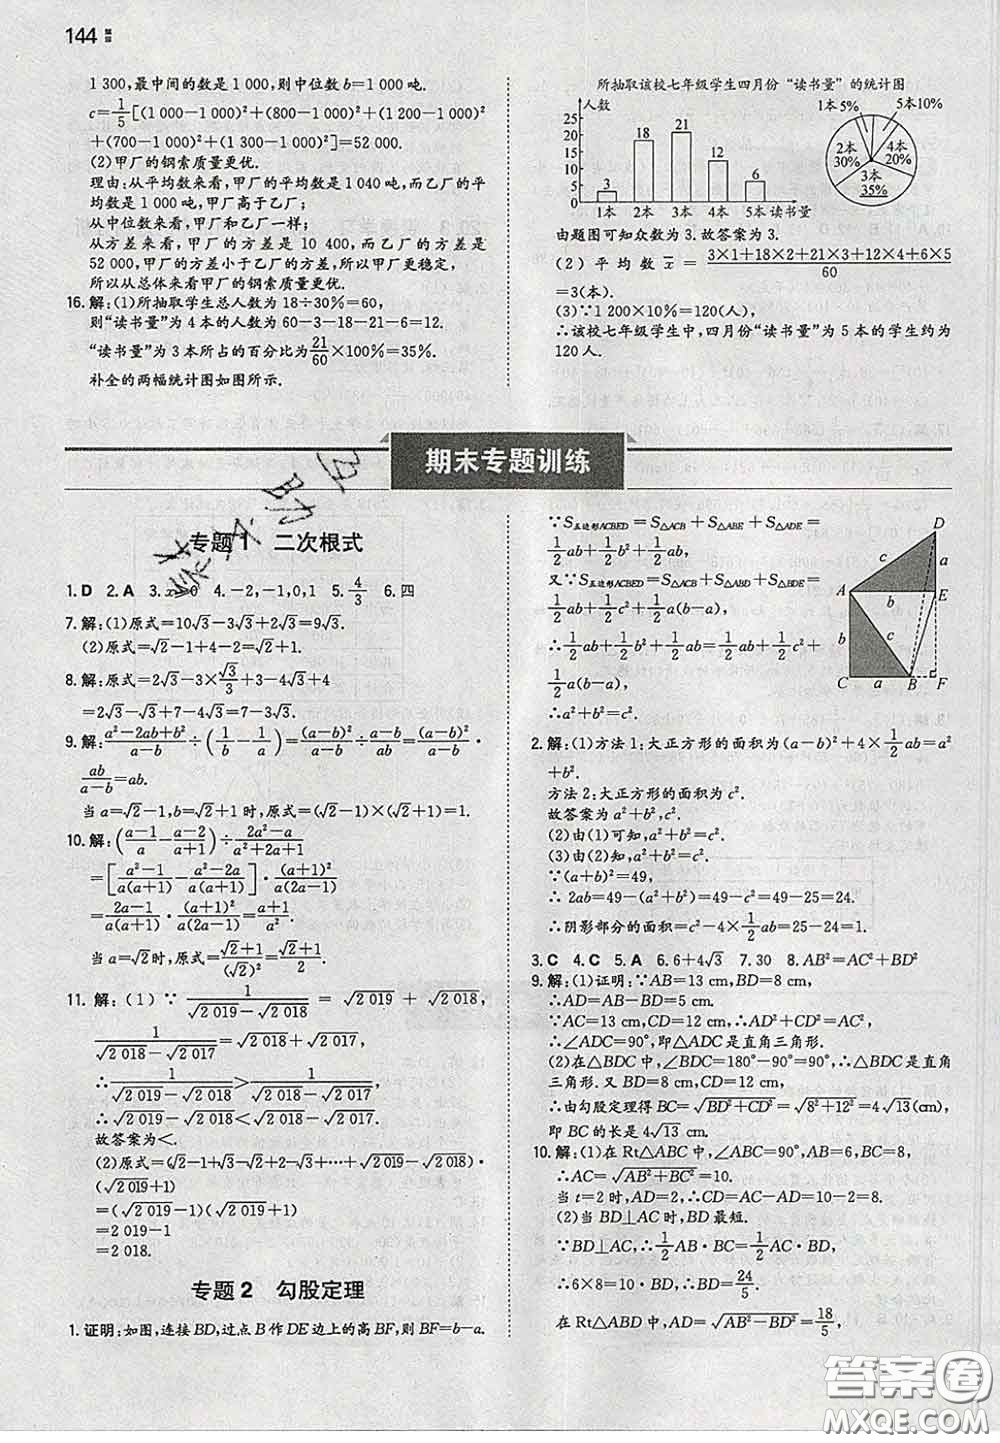 144
1 300,最中间的数是 1 000,则中位数 b=1 000 吨.
c=1/5[(1 000-1 000)²+(800-1 000)²+(1 200-1 000)²
+(700-1 000)²+(1 300-1 000)²]=52 000.
(2)甲厂的钢索质量更优.
理由:从平均数来看,甲厂的平均数是 1 040 吨,而乙厂的平
均数是 1 000 吨,甲厂高于乙厂;
从中位数来看,甲厂和乙厂一样;
从方差来看,甲厂的方差是 10 400,而乙厂的方差是
52 000,甲厂的方差小于乙厂的方差,所以甲厂更稳定,
所以从总体来看甲厂的钢索质量更优.
16. 解:(1)所抽取学生总人数为 18÷30%=60,
则“读书量”为 4 本的人数为 60-3-18-21-6=12.
“读书量”为 3 本所占的百分比为21/60×100%=35%.
补全的两幅统计图如图所示.
所抽取该校七年级学生四月份“读书量”的统计图
人数
25
20
15
10
5
0
3
18
21
12
6
1本 2本 3本 4本 5本 读书量
1本5%
5本10%
2本
30%
4本
20%
3本
35%
由题图可知众数为 3. 故答案为 3.
(2) 平均数 x̄ = (3×1+18×2+21×3+12×4+6×5)/60
=3(本).
(3)∵1 200×10%=120(人),
∴该校七年级学生中,四月份“读书量”为 5 本的学生约为
120 人.
期末专题训练
专题 1 二次根式
1. D 2. A 3. x≥0 4. -2,-1,0,1 5. 4/3 6. 四
7. 解:(1)原式=10√3-3√3+2√3=9√3.
(2)原式=√2-1+4-2=√2+1.
8. 解:原式=2√3-3×√3/3+3-√3+4
=2√3-√3+7-4√3=7-3√3.
9. 解:(a²-2ab+b²)/(a-b)÷(1/b-1/a)=(a-b)²/(a-b)÷(a-b)/ab=(a-b)²/(a-b)·
ab/(a-b)=ab.
当 a=√2-1,b=√2+1 时,原式=(√2-1)×(√2+1)=1.
10. 解:((a-1)/a-(a-2)/(a+1))÷(2a²-a)/(a²+2a+1)
=[(a²-1)/(a(a+1))-(a²-2a)/(a(a+1))]·(a+1)²/(a(2a-1))
=(2a-1)/(a(a+1))·(a+1)²/(a(2a-1))=(a+1)/a².
当 a=√2时,原式=(√2+1)/(√2)²=(√2+1)/2.
11. 解:(1)∵1/(√2 019-√2 018)=√2 019+√2 018,
1/(√2 018-√2 017)=√2 018+√2 017,
∴1/(√2 019-√2 018)>1/(√2 018-√2 017),
∴√2 019-√2 018<√2 018-√2 017.
故答案为<.
(2)原式=(√2-1+√3-√2+…+√2 019-√2 018)·
(√2 019+1)
=(√2 019-1)(√2 019+1)
=2 019-1
=2 018.
专题 2 勾股定理
1. 证明:如图,连接 BD,过点 B 作 DE 边上的高 BF,则 BF=b-a.
∵S五边形ACBED=S△ACB+S△ABE+S△ADE=
1/2ab+1/2b²+1/2ab,
又∵S五边形ACBED=S△ACB+S△ABD+S△BDE=
1/2ab+1/2c²+1/2a(b-a),
∴1/2ab+1/2b²+1/2ab=1/2ab+1/2c²+
1/2a(b-a),
∴a²+b²=c².
D
c
a
A
b
E
b
c
C a B F
2. 解:(1)方法 1:大正方形的面积为(a-b)²+4×1/2ab=a²
+b².
方法 2:大正方形的面积为 c².
故答案为 a²+b²,c².
(2)由(1)可知,a²+b²=c².
故答案为 a²+b²=c².
∵(a+b)²=49,
∴2ab=49-(a²+b²)=49-c²=49-25=24.
∴阴影部分的面积=c²-4×1/2ab=25-24=1.
3. C 4. C 5. A 6. 6+4√3 7. 30 8. AB²=AC²+BD²
9. 解:(1)证明:∵AB=13 cm,BD=8 cm,
∴AD=AB-BD=5 cm.
∵AC=13 cm,CD=12 cm,∴AD²+CD²=AC²,
∴∠ADC=90°,即△ADC 是直角三角形.
(2)在△BDC 中,∠BDC=180°-90°=90°,∴△BDC 是直角
三角形. 又 BD=8 cm,CD=12 cm,
∴由勾股定理得 BC=√BD²+CD²=√8²+12²=4√13(cm),
即 BC 的长是 4√13 cm.
10. 解:(1)在 Rt△ABC 中,∠ABC=90°,AB=6,BC=8,
∴AC=√AB²+BC²=10.
当 t=2 时,AD=2,∴CD=AC-AD=10-2=8.
(2)当 BD⊥AC 时,BD 最短.
∵BD⊥AC,∴1/2AB·BC=1/2AC·BD,
∴6×8=10·BD,∴BD=24/5.
∴在 Rt△ABD 中,AD=√AB²-BD²=18/5,
答案圈
MXQE.COM